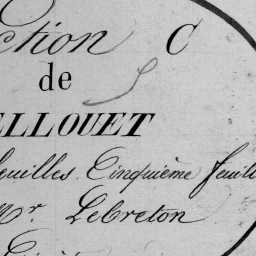 ction C
de
ELLOUET
feuilles. Cinquième feuill
Mr. Lebreton